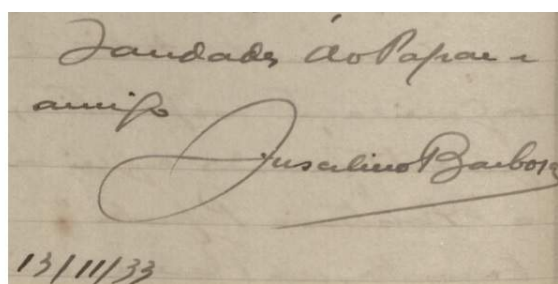 Saudades do Papae e
amigo
Juscelino Barbosa
13/11/33